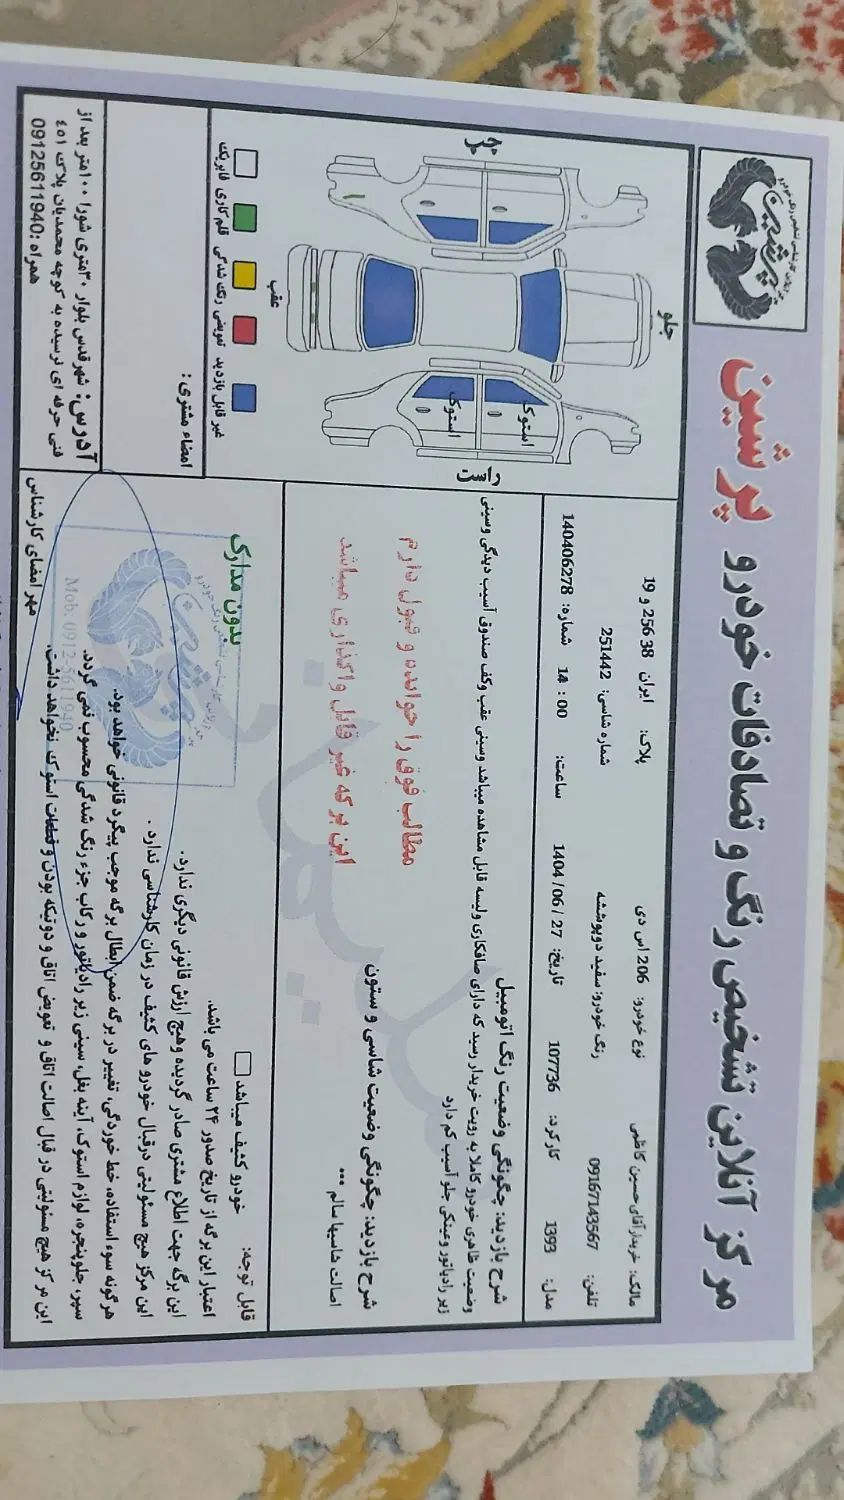 مرکز آنلاین تشخیص رنگ و تصادفات خودرو پرشین
مالک: خریدار آقای حسین کاظمی نوع خودرو: 206 اس دی پلاک: ایران 38 256 و 19
تلفن: 09167143567 رنگ خودرو: سفید دوپوششه شماره شاسی: 251442
مدل: 1393 کارکرد: 107736 تاریخ: 27 /06 /1404 ساعت: 14 : 00 شماره: 140406278
شرح بازدید: چگونگی وضعیت رنگ اتومبیل
وضعیت ظاهری خودرو کاملا به رویت خریدار رسید که دارای صافکاری ولیسه قابل مشاهده میباشد وسینی عقب وکف صندوق آسیب دیدگی وسینی
زیر رادیاتور وعینکی جلو آسیب کم دارد
مطالب فوق را خوانده و قبول دارم
شرح بازدید: چگونگی وضعیت شاسی و ستون
اصالت شاسیها سالم ...
این برگه غیر قابل واگذاری میباشد
جلو
چپ
راست
عقب
استوک
استوک
فابریک
قلم کاری
رنگ شدگی
تعویضی
غیر قابل بازدید
امضاء مشتری:
قابل توجه: خودرو کثیف میباشد
بدون مدارک
اعتبار این برگه از تاریخ صدور ۲۴ ساعت می باشد.
این برگه جهت اطلاع مشتری صادر گردیده وهیچ ارزش قانونی دیگری ندارد.
این مرکز هیچ مسئولیتی درقبال خودرو های کثیف در زمان کارشناسی ندارد.
هرگونه سوء استفاده، خط خوردگی، تغییر در برگه ضمن ابطال برگه موجب پیگرد قانونی خواهد بود.
سپر، جلوپنجره، لوازم استوک، آینه بغل، سینی زیر رادیاتور و رکاب جزء رنگ شدگی محسوب نمی گردد.
این مرکز هیچ مسئولیتی در قبال اصالت اتاق و تعویض اتاق و دوتیکه بودن و قطعات استوک نخواهد داشت.
Mob: 0912 5611940
مهر امضای کارشناس
آدرس: شهرقدس بلوار ۳۰متری شورا ۱۰۰متر بعد از
فنی حرفه ای نرسیده به کوچه محمدیان پلاک ٤٥١
همراه :09125611940